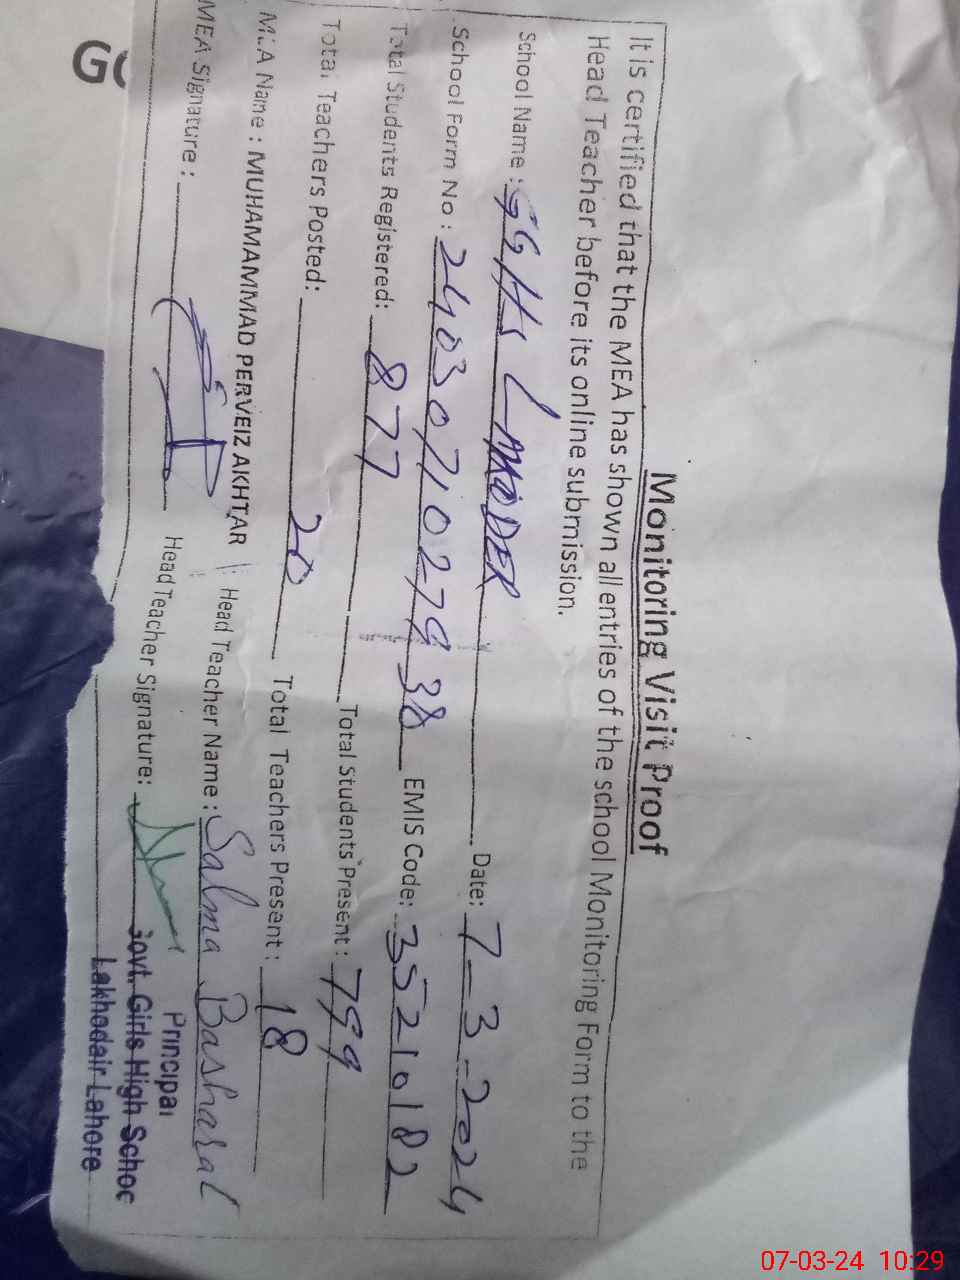 Monitoring Visit Proof
It is certified that the MEA has shown all entries of the school Monitoring Form to the
Head Teacher before its online submission.
School Name : GGHS LAKODER Date: 7-3-2024
School Form No : 2403071027938 EMIS Code: 35210182
Total Students Registered: 877 Total Students Present : 799
Total Teachers Posted: 20 Total Teachers Present : 18
MEA Name : MUHAMAMMAD PERVEIZ AKHTAR Head Teacher Name : Salma Basharat
MEA Signature : Head Teacher Signature:
Principal
Govt. Girls High Schoo
Lakhodair Lahore
GO
07-03-24 10:29